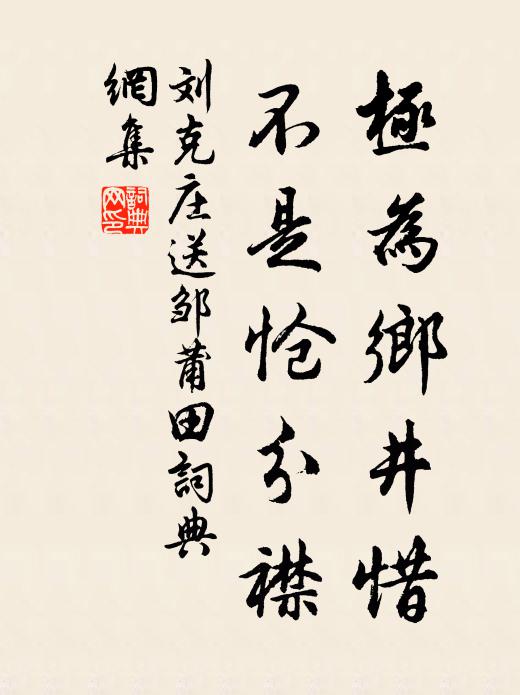 極為鄉井惜
不是怆分襟
刘克庄送邹莆田詞典
網集
詞典網印